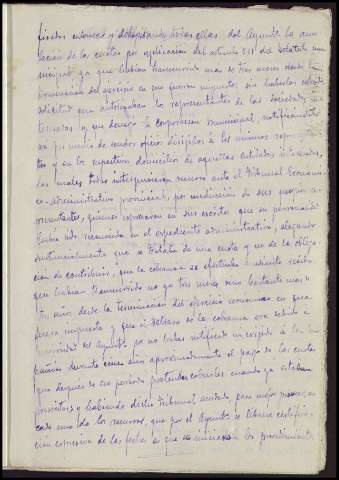 fincados entonces y obligando todas ellas del Ayunto la anu
lación de las cuotas por aplicación del artículo 511 del Estatuto mu
nicipal ya que habían transcurrido mas de tres meses desde la
terminación del servicio en que fueron impuestas, sin haberlas
solicitud que autorizaban los representantes de las Sociedades in
teresadas y que denegó la Corporación municipal, notificándolo
por medio de sendos oficios dirigidos a los mismos represen
tes y en los respectivos domicilios de aquellas entidades interesadas,
las cuales todas interpusieron recurso ante el Tribunal Económi
co-administrativo provincial, por mediación de sus propios re
presentantes, quienes expresaron en sus escritos que su personalidad
había sido reconocida en el expediente administrativo, alegando
sustancialmente que se trataba de una cuota y no de la obliga
ción de contribuir, que la cobranza se efectuaba mediante recibo
que habían transcurrido no ya tres meses sino bastante mas de
un año desde la terminación del servicio consumo en que
fueron impuesta y que si retraso de la cobranza era debido a
morosidad del Ayunto por no haber notificado ni exigido a las com
pañías durante cinco años aproximadamente el pago de las cuotas
que después de ese período pretendía cobrarlas cuando ya estaban
prescritas y habiendo dicho Tribunal acordado, para mejor proveer en
cada uno de los recursos, que por el Ayunto se librase certifica
ción expresiva de las fechas en que se iniciaron los procedimientos